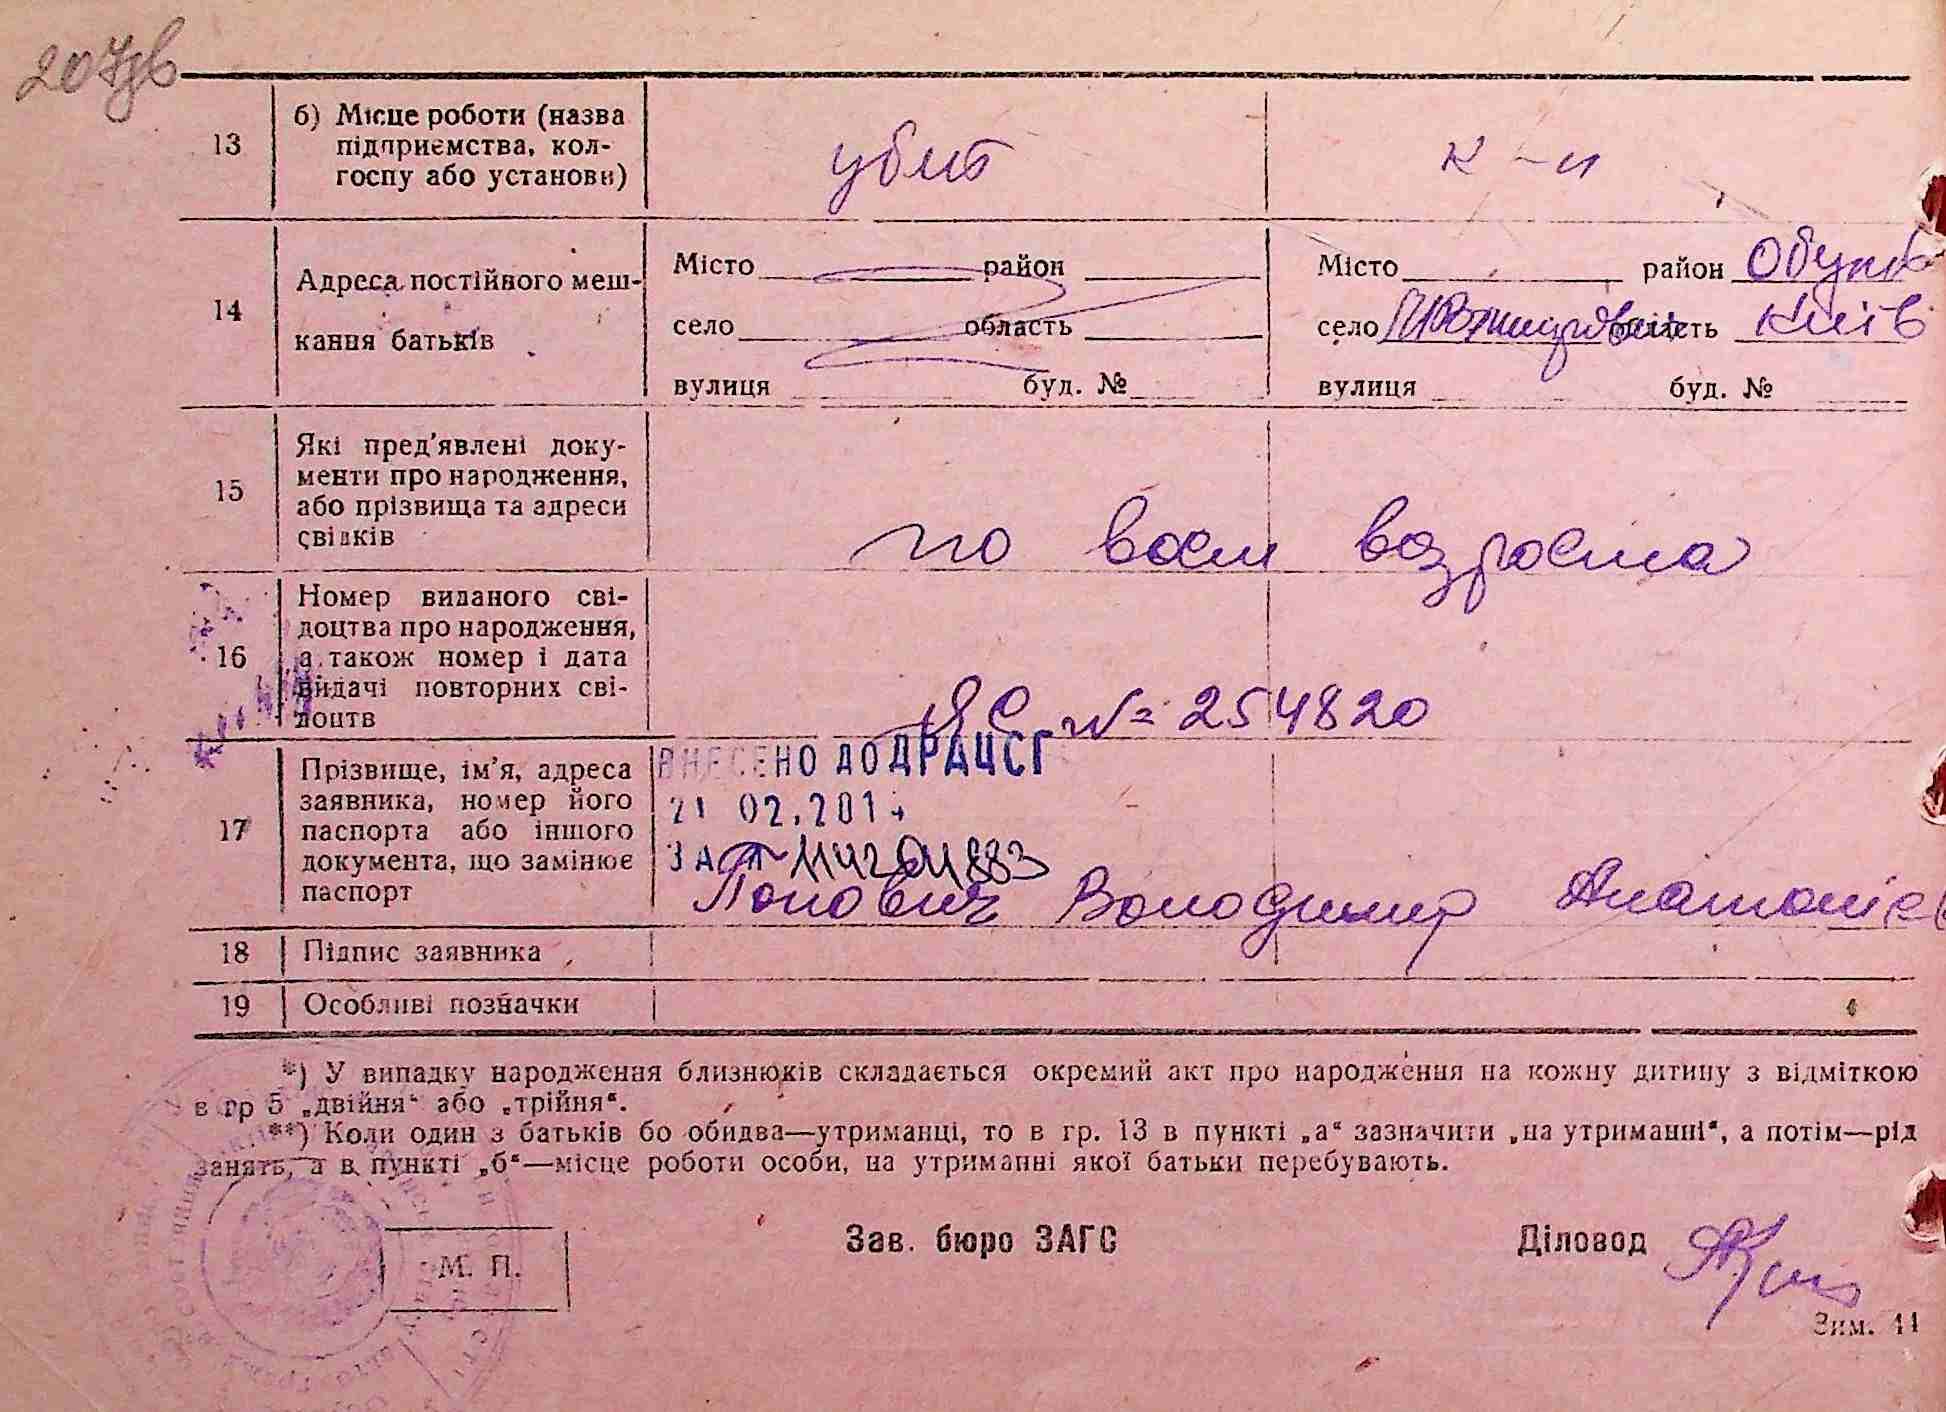 207зв
13
б) Місце роботи (назва
підприємства, кол-
госпу або установи)
убит
к-и
14
Адреса постійного меш-
кання батьків
Місто район
село область
вулиця буд. №
Місто район Обухів
село область Київ
вулиця буд. №
15
Які пред'явлені доку-
менти про народження,
або прізвища та адреси
свідків
по восп возроста
16
Номер виданого сві-
доцтва про народження,
а також номер і дата
видачі повторних сві-
доцтв
ЯС № 254820
17
Прізвище, ім'я, адреса
заявника, номер його
паспорта або іншого
документа, що замінює
паспорт
ВНЕСЕНО ДО ДРАЦСГ
21 02.201
ЗА
Попович Володимир Анатоліев
18
Підпис заявника
19
Особливі позначки
*) У випадку народження близнюків складається окремий акт про народження на кожну дитину з відміткою
в гр 5 „двійня“ або „трійня“.
**) Коли один з батьків бо обидва—утриманці, то в гр. 13 в пункті „а“ зазначити „на утриманні“, а потім—рід
занять, а в пункті „б“—місце роботи особи, на утриманні якої батьки перебувають.
М. П.
Зав. бюро ЗАГС
Діловод
Зим. 11